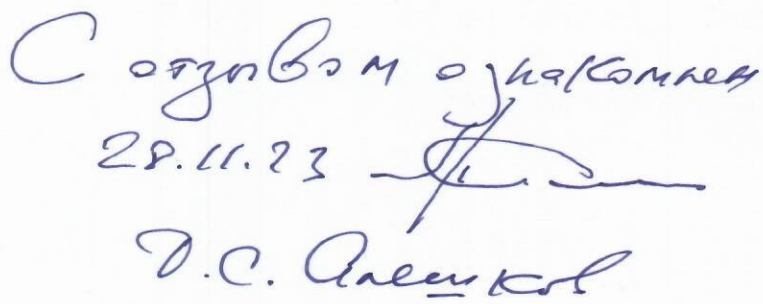 С отзывом ознакомлен
28.11.23
Д.С. Алешков